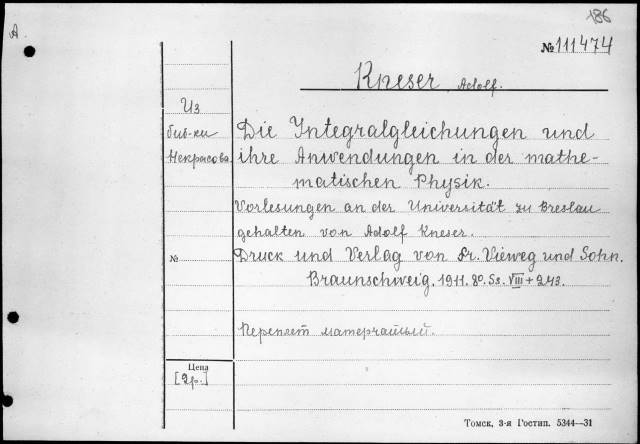 186
A
№ 111474
Kneser, Adolf.
Из
биб-ки
Некрасова.
Die Integralgleichungen und
ihre Anwendungen in der mathe-
matischen Physik.
Vorlesungen an der Universität zu Breslau
gehalten von Adolf Kneser.
№
Druck und Verlag von Fr. Vieweg und Sohn.
Braunschweig, 1911. 8o. Ss. VIII + 243.
Переплет матерчатый.
Цена
[2р.]
Томск, 3-я Гостип. 5344—31